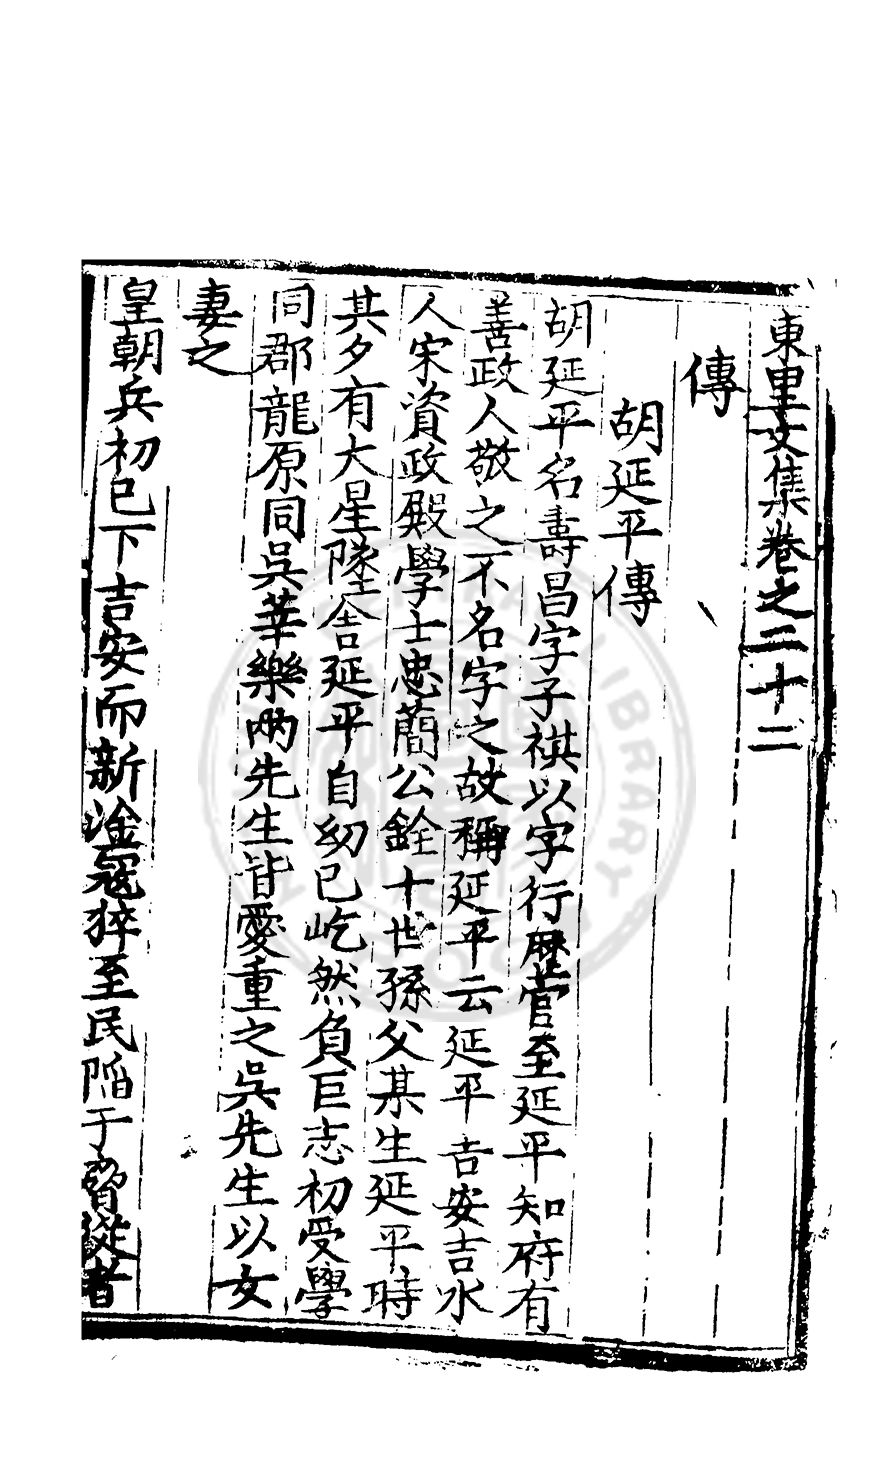 東里文集卷之二十二
傳
胡延平傳
胡延平名壽昌字子祺以字行歷官至延平知府有
善政人敬之不名字之故稱延平云延平吉安吉水
人宋資政殿學士忠簡公銓十世孫父某生延平時
其夕有大星墜舍延平自幼已屹然負巨志初受學
同郡龍原同吳莘樂兩先生皆愛重之吳先生以女
妻之
皇朝兵初已下吉安而新淦寇猝至民陷于脅從者